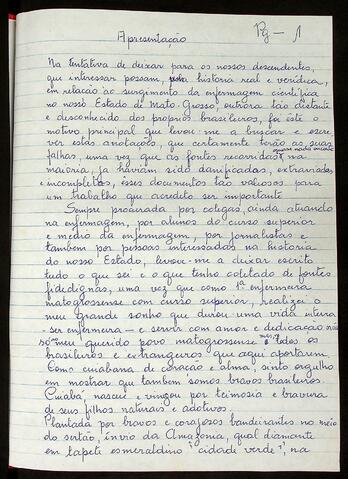 Pg - 1
Apresentação
Na tentativa de deixar para os nossos descendentes,
que interessar possam, uma história real e verídica,
em relação ao surgimento da enfermagem científica
no nosso Estado de Mato-Grosso, outrora tão distante
e desconhecido dos próprios brasileiros, foi este o
motivo principal que levou-me a buscar e escre
ver estas anotações, que certamente terão as suas
falhas, uma vez que as fontes recorridas, na
maioria, já haviam sido danificadas, extraviadas
e incompletas, esses documentos tão valiosos para
um trabalho que acredito ser importante
Sempre procurada por colegas, ainda atuando
na enfermagem, por alunos do curso superior
e médio da enfermagem, por jornalistas e
tambem por pessoas interessadas na história
do nosso Estado, levou-me a deixar escrito
tudo o que sei e o que tenho coletado de fontes
fidedignas, uma vez que como 1ª enfermeira
matogrossense com curso superior, realizei o
meu grande sonho que durou uma vida inteira
- ser enfermeira - e servir com amor e dedicação não
só meu querido povo matogrossense mas, todos os
brasileiros e extrangeiros que aqui aportaram
Como cuiabana de coração e alma, sinto orgulho
em mostrar que tambem somos bravos brasileiros.
Cuiabá, nasceu e vingou por teimosia e bravura
de seus filhos naturais e adotivos
Plantada por bravos e corajosos bandeirantes no meio
do sertão, ínvio da Amazonia, qual diamante
em tapete esmeraldino "cidade verde", na